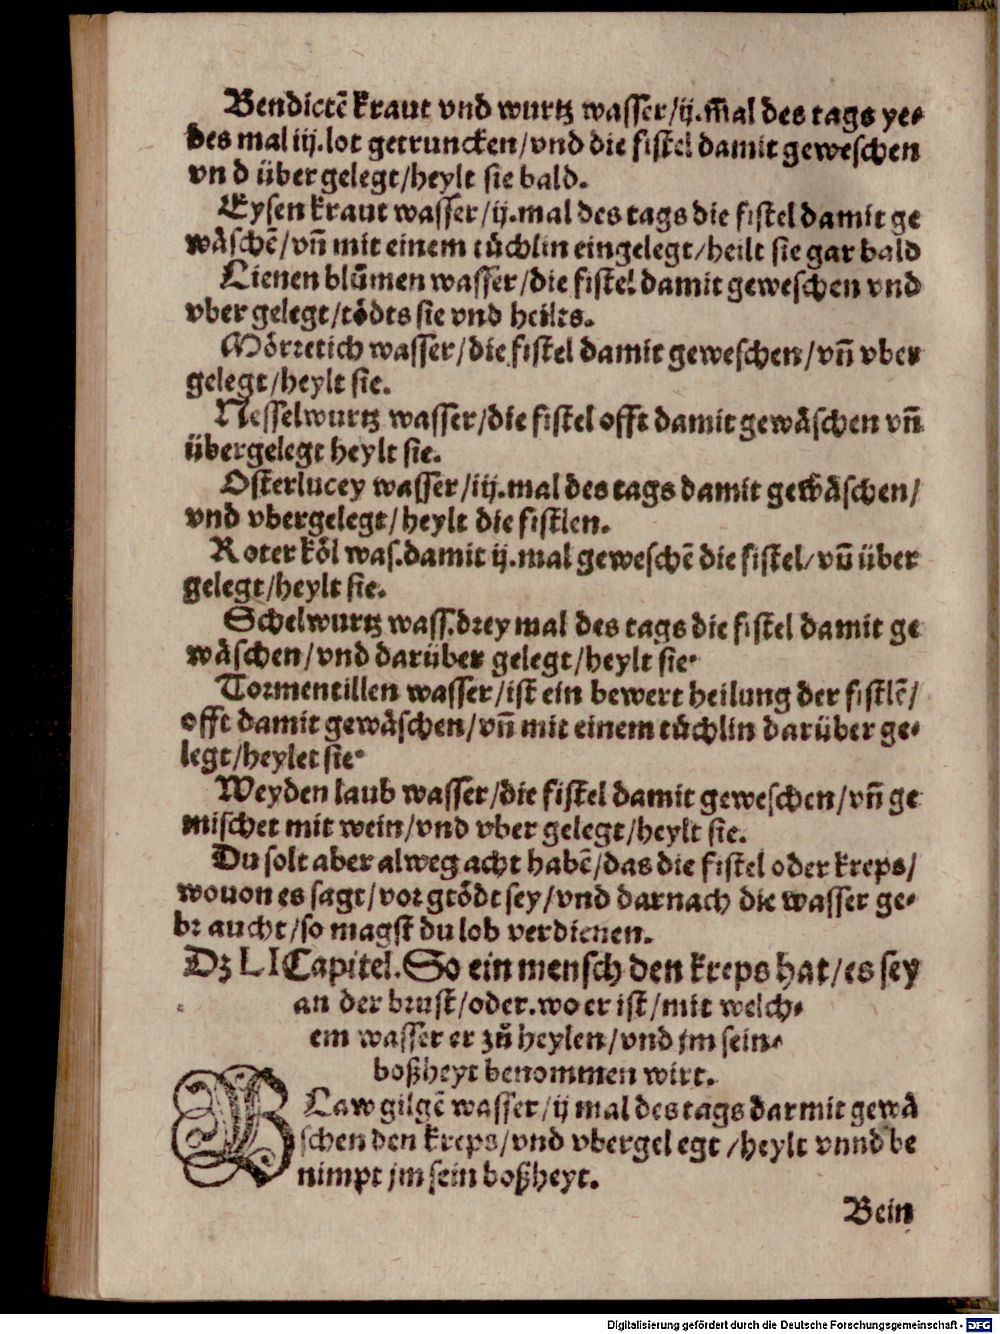 Bendictē kraut vnd wurtz wasser/ij.m̄al des tags ye⸗
des mal iij.lot getruncken/vnd die fistel damit geweschen
vn d über gelegt/heylt sie bald.
Eysen kraut wasser/ij.mal des tags die fistel damit ge
wåschē/vñ mit einem tůchlin eingelegt/heilt sie gar bald
Lienen blůmen wasser/die fistel damit geweschen vnd
vber gelegt/tödts sie vnd heilts.
Mörretich wasser/die fistel damit geweschen/vñ vber
gelegt/heylt sie.
Nesselwurtz wasser/die fistel offt damit gewåschen vñ
übergelegt heylt sie.
Osterlucey wasser/iij.mal des tags damit gewåschen/
vnd vbergelegt/heylt die fistlen.
Roter köl was.damit ij.mal geweschē die fistel/vñ über
gelegt/heylt sie.
Schelwurtz wass.drey mal des tags die fistel damit ge
wåschen/vnd darüber gelegt/heylt sie.
Tormentillen wasser/ist ein bewert heilung der fistlē/
offt damit gewåschen/vñ mit einem tůchlin darüber ge⸗
legt/heylet sie.
Weyden laub wasser/die fistel damit geweschen/vñ ge
mischet mit wein/vnd vber gelegt/heylt sie.
Du solt aber alweg acht habē/das die fistel oder kreps/
wouon es sagt/vor gtödt sey/vnd darnach die wasser ge⸗
br aucht/so magst du lob verdienen.
Dz LI Capitel. So ein mensch den kreps hat/es sey
an der brust/oder.wo er ist/mit welch⸗
em wasser er zů heylen/vnd jm sein⸗
boßheyt benommen wirt.
BLaw gilgē wasser/ij mal des tags darmit gewå
schen den kreps/vnd vbergel egt/heylt vnnd be
nimpt jm sein boßheyt.
Bein
Digitalisierung gefördert durch die Deutsche Forschungsgemeinschaft - DFG